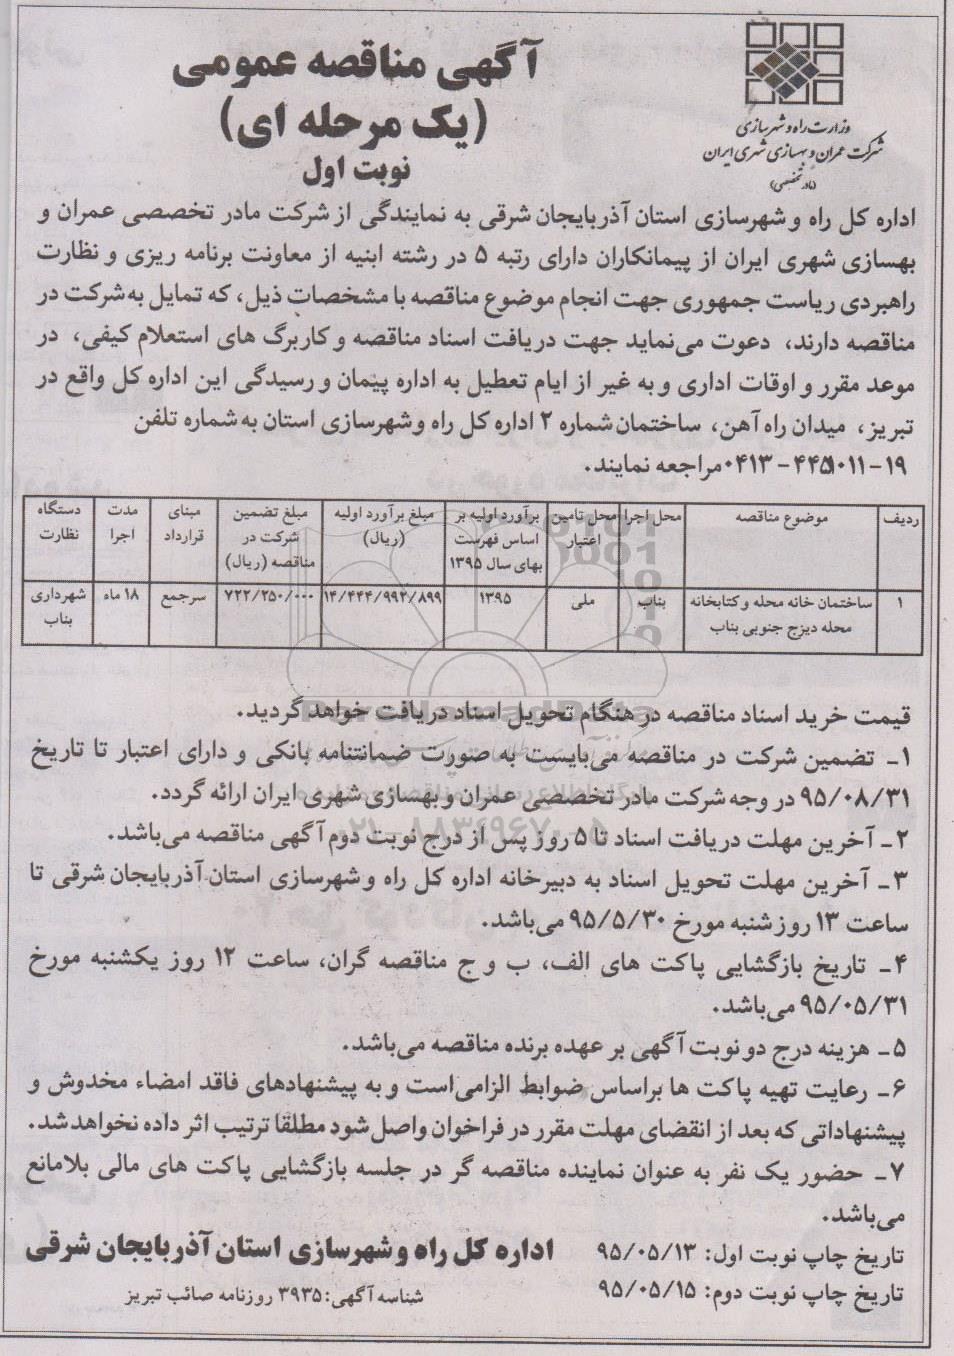 آگهی مناقصه عمومی
(یک مرحله ای)
نوبت اول
وزارت راه و شهرسازی
شرکت عمران و بهسازی شهری ایران
(مادر تخصصی)
اداره کل راه و شهرسازی استان آذربایجان شرقی به نمایندگی از شرکت مادر تخصصی عمران و
بهسازی شهری ایران از پیمانکاران دارای رتبه ۵ در رشته ابنیه از معاونت برنامه ریزی و نظارت
راهبردی ریاست جمهوری جهت انجام موضوع مناقصه با مشخصات ذیل، که تمایل به شرکت در
مناقصه دارند، دعوت می‌نماید جهت دریافت اسناد مناقصه و کاربرگ های استعلام کیفی، در
موعد مقرر و اوقات اداری و به غیر از ایام تعطیل به اداره پیمان و رسیدگی این اداره کل واقع در
تبریز، میدان راه آهن، ساختمان شماره ۲ اداره کل راه و شهرسازی استان به شماره تلفن
۱۹-۴۴۵۱۰۱۱-۰۴۱۳ مراجعه نمایند.
ردیف | موضوع مناقصه | محل اجرا | محل تامین اعتبار | برآورد اولیه بر اساس فهرست بهای سال ۱۳۹۵ | مبلغ برآورد اولیه (ریال) | مبلغ تضمین شرکت در مناقصه (ریال) | مبنای قرارداد | مدت اجرا | دستگاه نظارت
۱ | ساختمان خانه محله و کتابخانه محله دیزج جنوبی بناب | بناب | ملی | ۱۳۹۵ | ۱۴/۴۴۴/۹۹۲/۸۹۹ | ۷۲۲/۲۵۰/۰۰۰ | سرجمع | ۱۸ ماه | شهرداری بناب
قیمت خرید اسناد مناقصه در هنگام تحویل اسناد دریافت خواهد گردید.
۱- تضمین شرکت در مناقصه می‌بایست به صورت ضمانتنامه بانکی و دارای اعتبار تا تاریخ
۹۵/۰۸/۳۱ در وجه شرکت مادر تخصصی عمران و بهسازی شهری ایران ارائه گردد.
۲- آخرین مهلت دریافت اسناد تا ۵ روز پس از درج نوبت دوم آگهی مناقصه می‌باشد.
۳- آخرین مهلت تحویل اسناد به دبیرخانه اداره کل راه و شهرسازی استان آذربایجان شرقی تا
ساعت ۱۳ روز شنبه مورخ ۹۵/۵/۳۰ می‌باشد.
۴- تاریخ بازگشایی پاکت های الف، ب و ج مناقصه گران، ساعت ۱۲ روز یکشنبه مورخ
۹۵/۰۵/۳۱ می‌باشد.
۵- هزینه درج دو نوبت آگهی بر عهده برنده مناقصه می‌باشد.
۶- رعایت تهیه پاکت ها براساس ضوابط الزامی است و به پیشنهادهای فاقد امضاء مخدوش و
پیشنهاداتی که بعد از انقضای مهلت مقرر در فراخوان واصل شود مطلقا ترتیب اثر داده نخواهد شد.
۷- حضور یک نفر به عنوان نماینده مناقصه گر در جلسه بازگشایی پاکت های مالی بلامانع
می‌باشد.
تاریخ چاپ نوبت اول: ۹۵/۰۵/۱۳
تاریخ چاپ نوبت دوم: ۹۵/۰۵/۱۵
اداره کل راه و شهرسازی استان آذربایجان شرقی
شناسه آگهی: ۳۹۳۵ روزنامه صائب تبریز